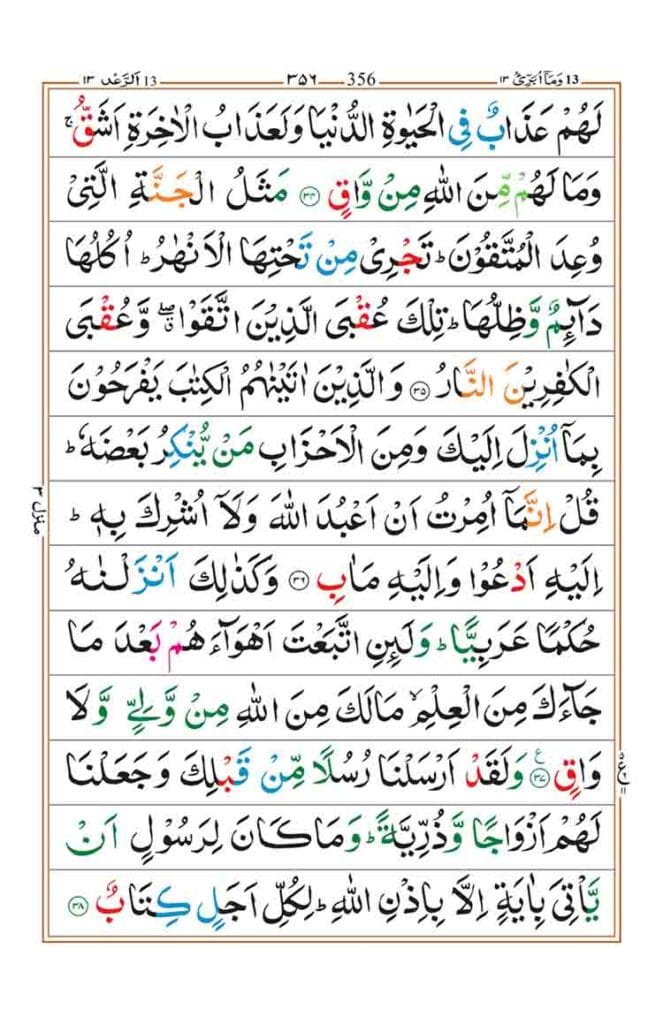 13 وَمَآ اُبَرِّئُ ١٣ 356 ٣٥٦ 13 اَلرَّعْد ١٣
لَهُمْ عَذَابٌ فِى الْحَيٰوةِ الدُّنْيَا وَلَعَذَابُ الْاٰخِرَةِ اَشَقُّ ۚ
وَمَا لَهُمْ مِّنَ اللّٰهِ مِنْ وَّاقٍ ﴿٣٤﴾ مَثَلُ الْجَنَّةِ الَّتِىْ
وُعِدَ الْمُتَّقُوْنَ ؕ تَجْرِىْ مِنْ تَحْتِهَا الْاَنْهٰرُ ؕ اُكُلُهَا
دَآئِمٌ وَّظِلُّهَا ؕ تِلْكَ عُقْبَى الَّذِيْنَ اتَّقَوْا ۖ ۗ وَّعُقْبَى
الْكٰفِرِيْنَ النَّارُ ﴿٣٥﴾ وَالَّذِيْنَ اٰتَيْنٰهُمُ الْكِتٰبَ يَفْرَحُوْنَ
بِمَاۤ اُنْزِلَ اِلَيْكَ وَمِنَ الْاَحْزَابِ مَنْ يُّنْكِرُ بَعْضَهٗ ؕ
قُلْ اِنَّمَاۤ اُمِرْتُ اَنْ اَعْبُدَ اللّٰهَ وَلَاۤ اُشْرِكَ بِهٖ ؕ
اِلَيْهِ اَدْعُوْا وَاِلَيْهِ مَاٰبِ ﴿٣٦﴾ وَكَذٰلِكَ اَنْزَلْنٰهُ
حُكْمًا عَرَبِيًّا ؕ وَلَئِنِ اتَّبَعْتَ اَهْوَآءَهُمْ بَعْدَ مَا
جَآءَكَ مِنَ الْعِلْمِ ۙ مَالَكَ مِنَ اللّٰهِ مِنْ وَّلِىٍّ وَّلَا
وَاقٍ ﴿٣٧﴾ ع وَلَقَدْ اَرْسَلْنَا رُسُلًا مِّنْ قَبْلِكَ وَجَعَلْنَا
لَهُمْ اَزْوَاجًا وَّذُرِّيَّةً ؕ وَمَا كَانَ لِرَسُوْلٍ اَنْ
يَّاْتِىَ بِاٰيَةٍ اِلَّا بِاِذْنِ اللّٰهِ ؕ لِكُلِّ اَجَلٍ كِتَابٌ ﴿٣٨﴾
منزل ٣
ع ١١